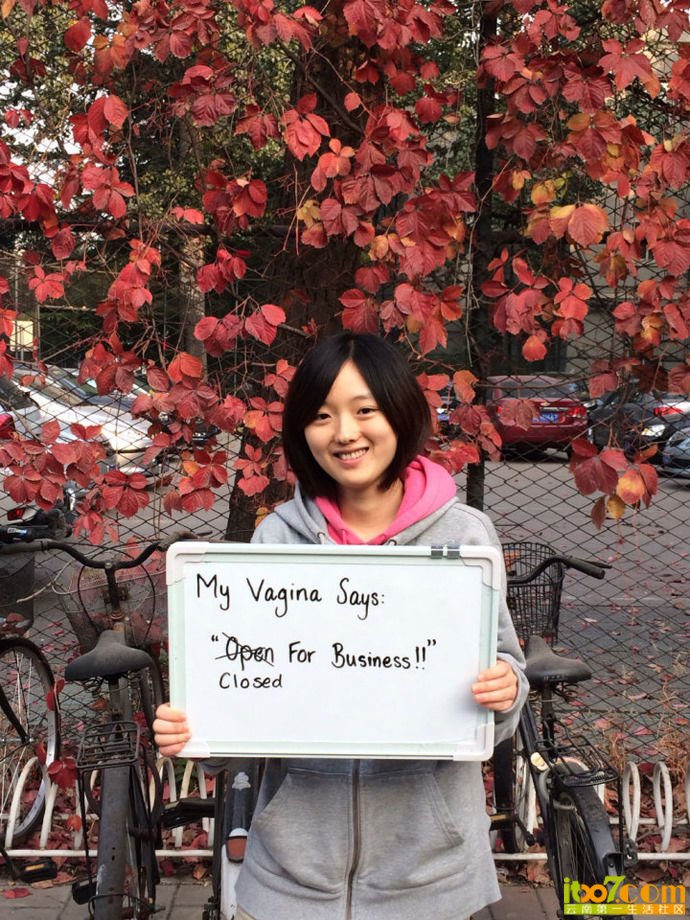 My Vagina Says:
"Open For Business!!"
Closed
itbo7.com
云南第一生活社区